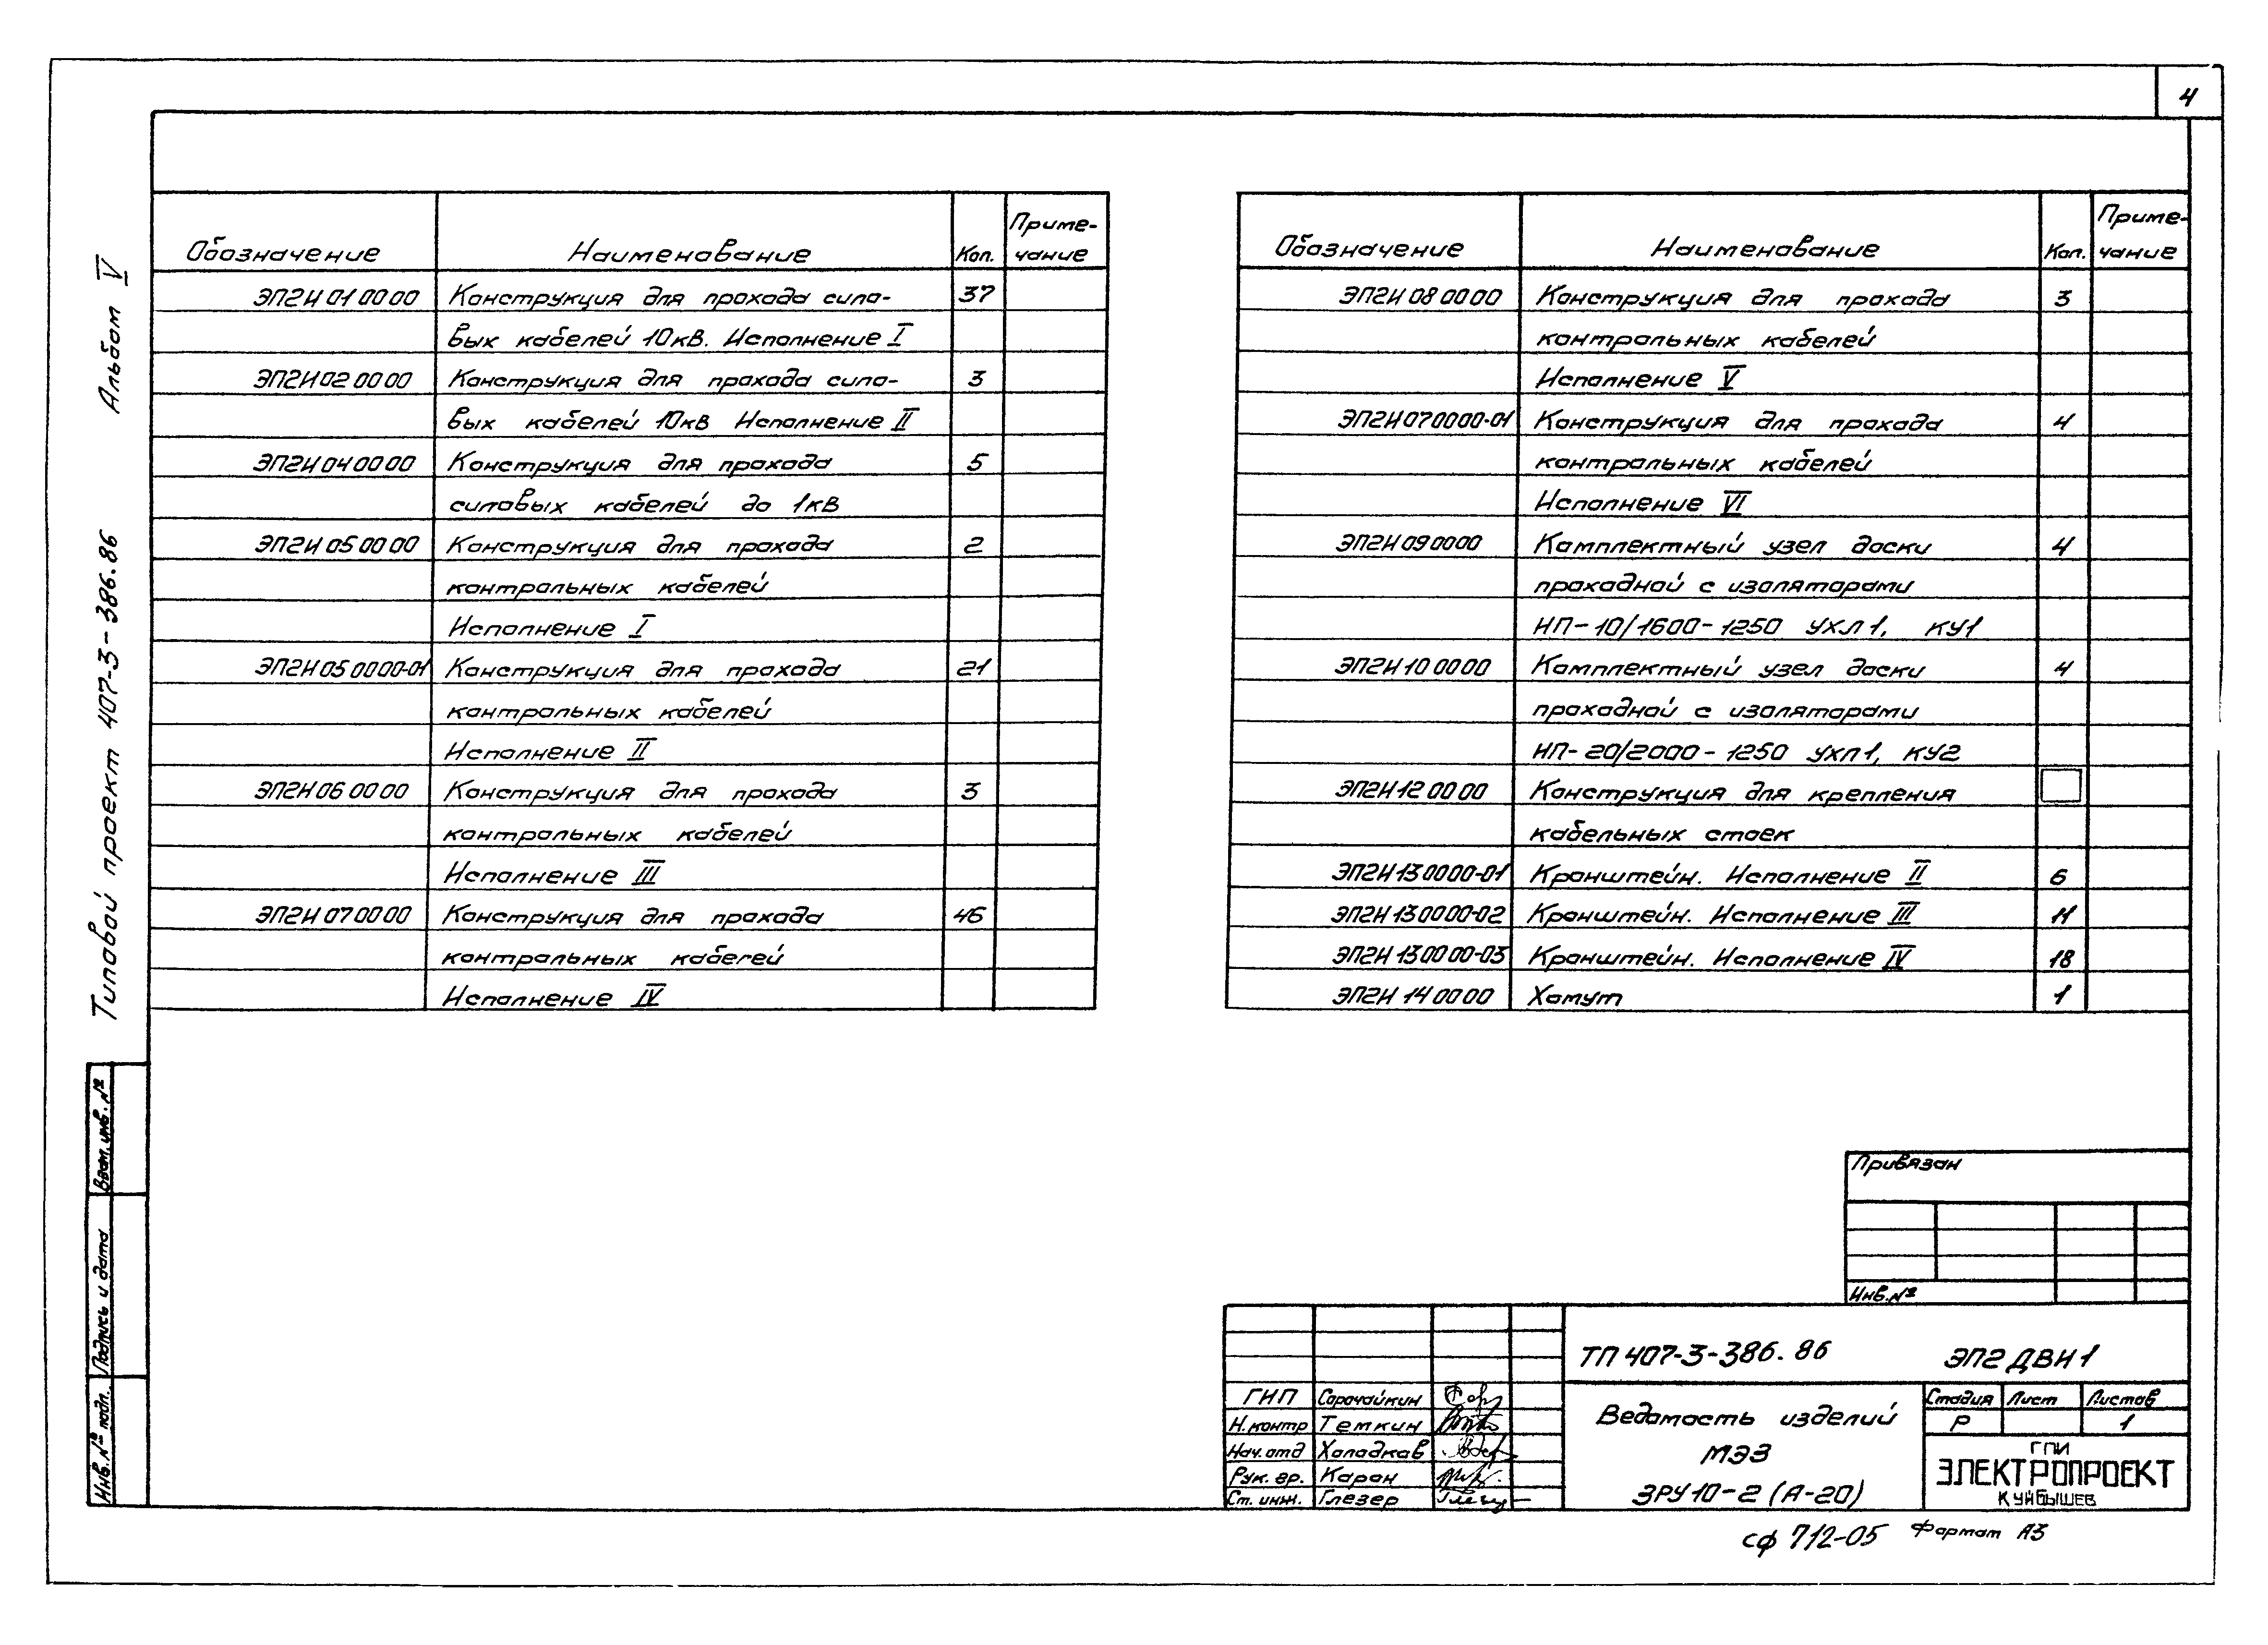 4
Альбом V
Типовой проект 407-3-386.86
Обозначение Наименование Кол. Приме-
чание
ЭП2И 01 00 00 Конструкция для прохода сило- 37
вых кабелей 10кВ. Исполнение I
ЭП2И 02 00 00 Конструкция для прохода сило- 3
вых кабелей 10кВ Исполнение II
ЭП2И 04 00 00 Конструкция для прохода 5
силовых кабелей до 1кВ
ЭП2И 05 00 00 Конструкция для прохода 2
контрольных кабелей
Исполнение I
ЭП2И 05 00 00-01 Конструкция для прохода 21
контрольных кабелей
Исполнение II
ЭП2И 06 00 00 Конструкция для прохода 3
контрольных кабелей
Исполнение III
ЭП2И 07 00 00 Конструкция для прохода 46
контрольных кабелей
Исполнение IV
Обозначение Наименование Кол. Приме-
чание
ЭП2И 08 00 00 Конструкция для прохода 3
контрольных кабелей
Исполнение V
ЭП2И 07 00 00-01 Конструкция для прохода 4
контрольных кабелей
Исполнение VI
ЭП2И 09 00 00 Комплектный узел доски 4
проходной с изоляторами
ИП-10/1600-1250 УХЛ1, КУ1
ЭП2И 10 00 00 Комплектный узел доски 4
проходной с изоляторами
ИП-20/2000-1250 УХЛ1, КУ2
ЭП2И 12 00 00 Конструкция для крепления
кабельных стоек
ЭП2И 13 00 00-01 Кронштейн. Исполнение II 6
ЭП2И 13 00 00-02 Кронштейн. Исполнение III 11
ЭП2И 13 00 00-03 Кронштейн. Исполнение IV 18
ЭП2И 14 00 00 Хомут 1
Взам. инв. №
Подпись и дата
Инв. № подл.
Привязан
Инв. №
ТП 407-3-386.86 ЭП2 ДВИ1
ГИП Сорочайкин
Н.контр Темкин
Нач. отд Холодков
Рук. гр. Каран
Ст. инж. Глезер
Ведомость изделий
МЭЗ
ЗРУ10-2 (А-20)
Стадия Лист Листов
Р 1
ГПИ
ЭЛЕКТРОПРОЕКТ
КУЙБЫШЕВ
сф 712-05 Формат А3